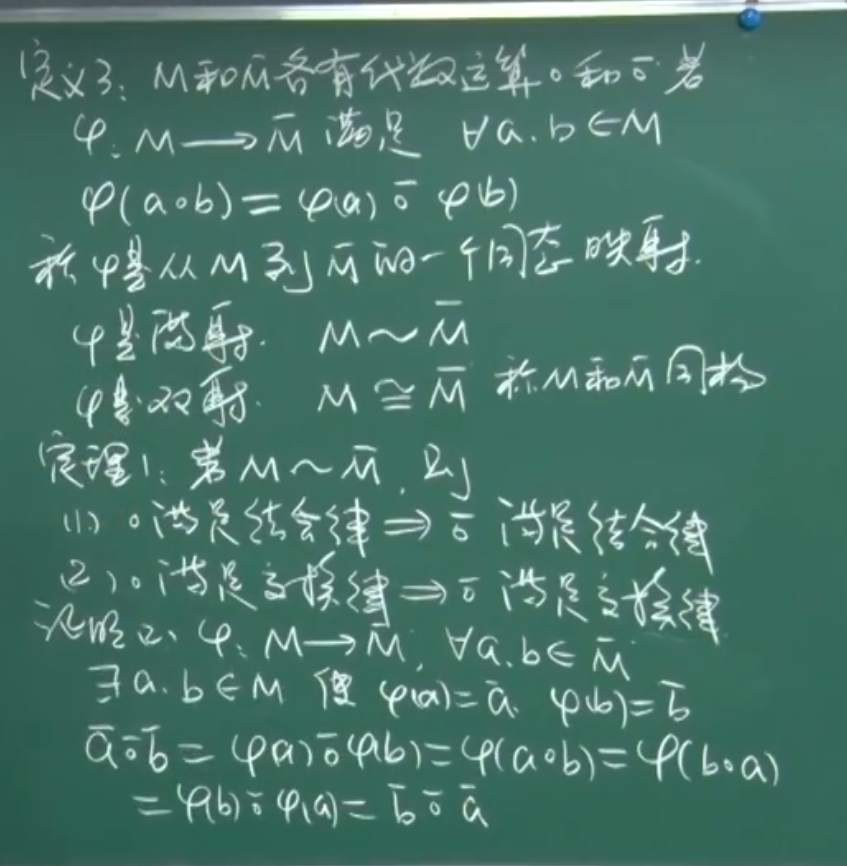 定义3: M和M̄各有代数运算∘和∘̄ 若
φ: M⟶M̄ 满足 ∀a.b∈M
φ(a∘b)=φ(a)∘̄φ(b)
称φ是从M到M̄的一个同态映射.
φ是满射. M∼M̄
φ是双射. M≅M̄ 称M和M̄同构
定理1: 若M∼M̄, 则
(1) ∘满足结合律⇒∘̄满足结合律
(2) ∘满足交换律⇒∘̄满足交换律
证明(2) φ: M→M̄, ∀a.b∈M̄
∃a.b∈M 使 φ(a)=ā. φ(b)=b̄
ā∘̄b̄=φ(a)∘̄φ(b)=φ(a∘b)=φ(b∘a)
=φ(b)∘̄φ(a)=b̄∘̄ā